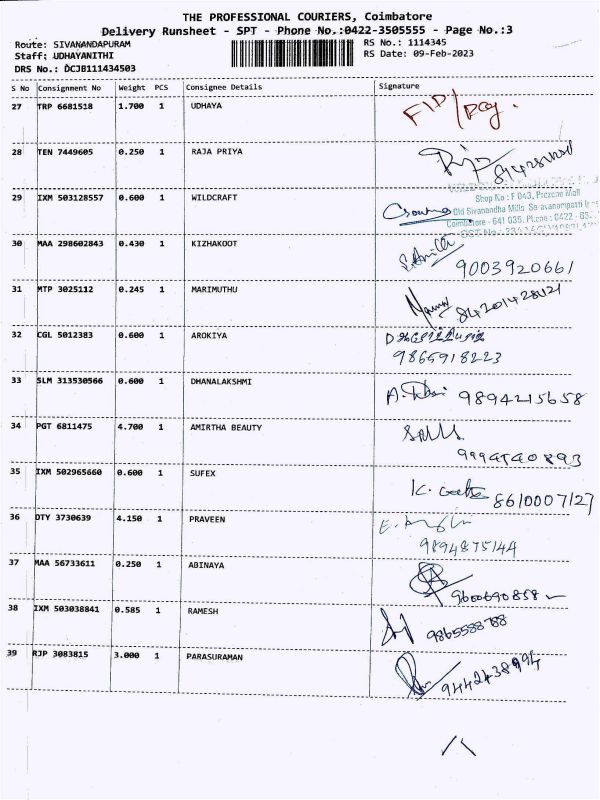 THE PROFESSIONAL COURIERS, Coimbatore
Delivery Runsheet - SPT - Phone No.:0422-3505555 - Page No.:3
Route: SIVANANDAPURAM RS No.: 1114345
Staff: UDHAYANITHI RS Date: 09-Feb-2023
DRS No.: DCJB111434503
S No Consignment No Weight PCS Consignee Details Signature
27 TRP 6681518 1.700 1 UDHAYA
28 TEN 7449605 0.250 1 RAJA PRIYA
29 IXM 503128557 0.600 1 WILDCRAFT
Shop No : F 043, Prozone Mall
Old Sivanandha Mills Saravanampatti
Coimbatore - 641 035. Phone : 0422 - 63
30 MAA 298602843 0.430 1 KIZHAKOOT
9003920661
31 MTP 3025112 0.245 1 MARIMUTHU
32 CGL 5012383 0.600 1 AROKIYA
9865918223
33 SLM 313530566 0.600 1 DHANALAKSHMI
9894215658
34 PGT 6811475 4.700 1 AMIRTHA BEAUTY
35 IXM 502965660 0.600 1 SUFEX
K. Geetha 8610007127
36 DTY 3730639 4.150 1 PRAVEEN
9894875144
37 MAA 56733611 0.250 1 ABINAYA
9600690858
38 IXM 503038841 0.585 1 RAMESH
9865588788
39 RJP 3083815 3.000 1 PARASURAMAN
9442438994